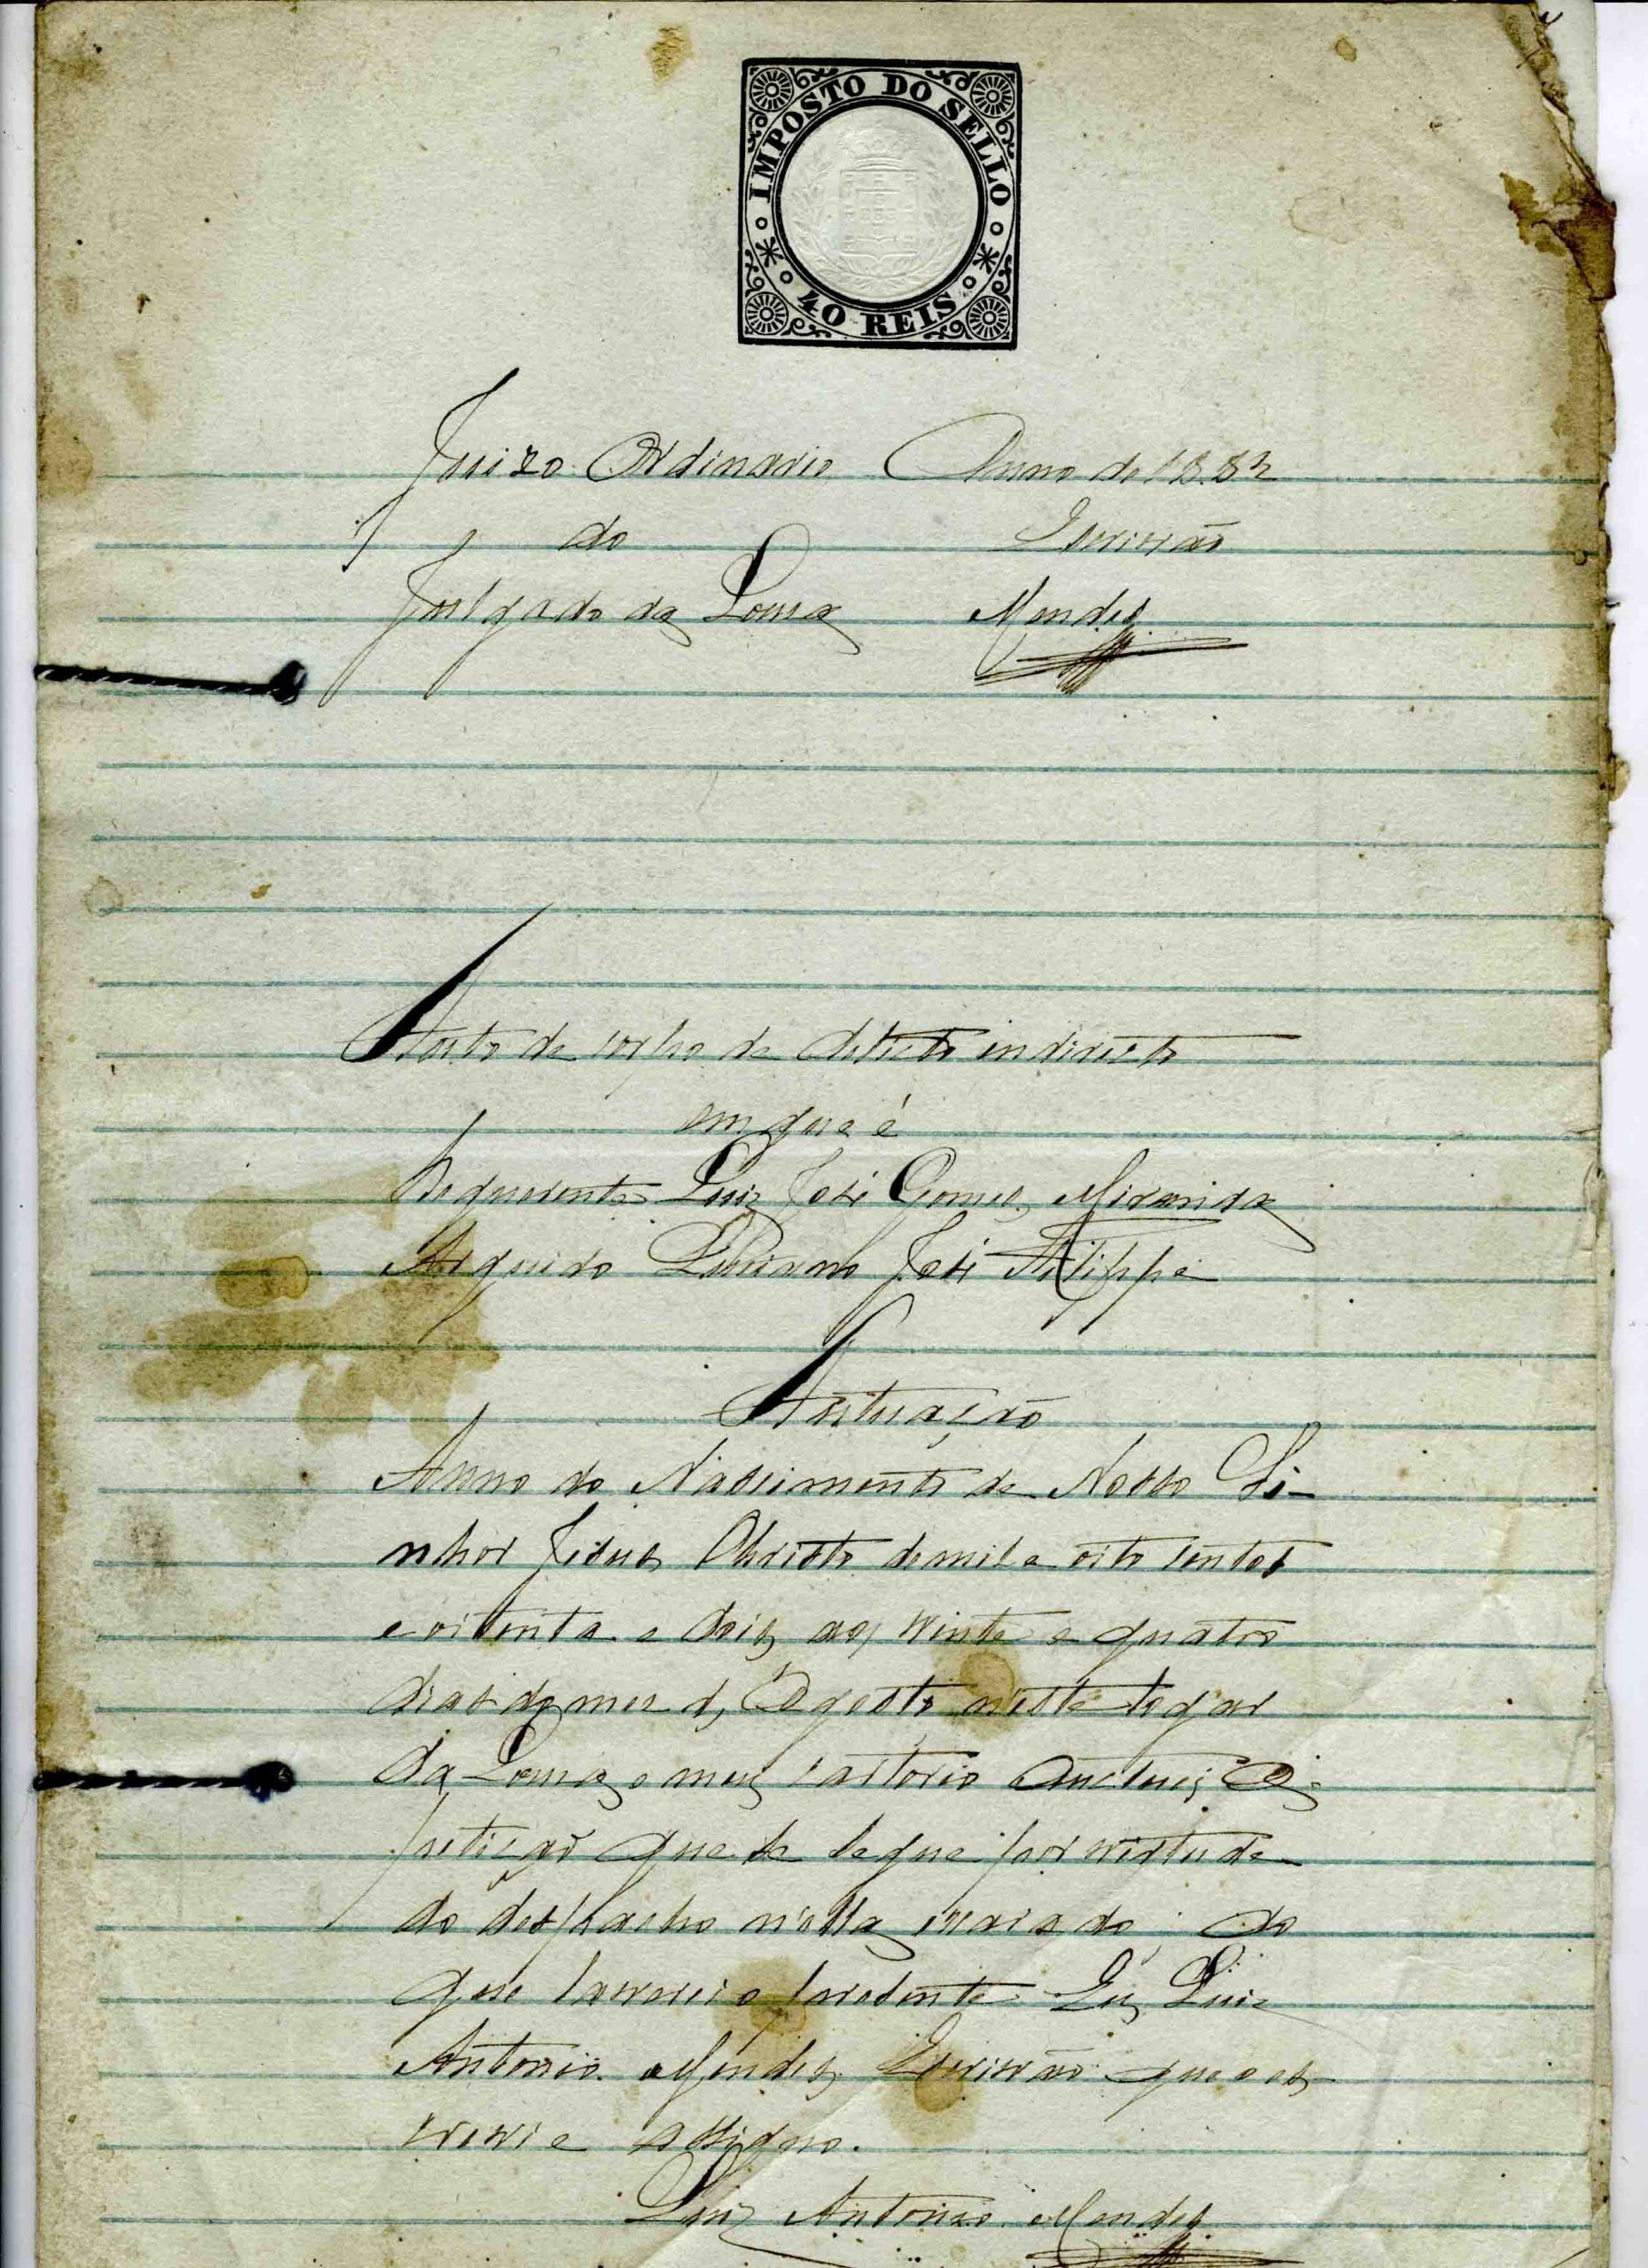 IMPOSTO DO SELLO
40 REIS
Juizo Ordinario Anno de 1882
do Escrivão
Julgado da Louza Mendes
Auto de corpo de delicto indirecto
em que é
Requerente Luiz José Gomes Miranda
Arguido Luciano José Filippe
Autuação
Anno do Nascimento de Nosso Se-
nhor Jesus Christo de mil e oito centos
e oitenta e dois aos vinte e quatro
dias do mez d'Agosto n'este logar
da Louza e meu cartorio auctuei a
petição que se segue por virtude
do despacho n'ella exarado do
que lavrei o presente Eu Luiz
Antonio Mendes Escrivão que o es-
crevi e assigno.
Luiz Antonio Mendes